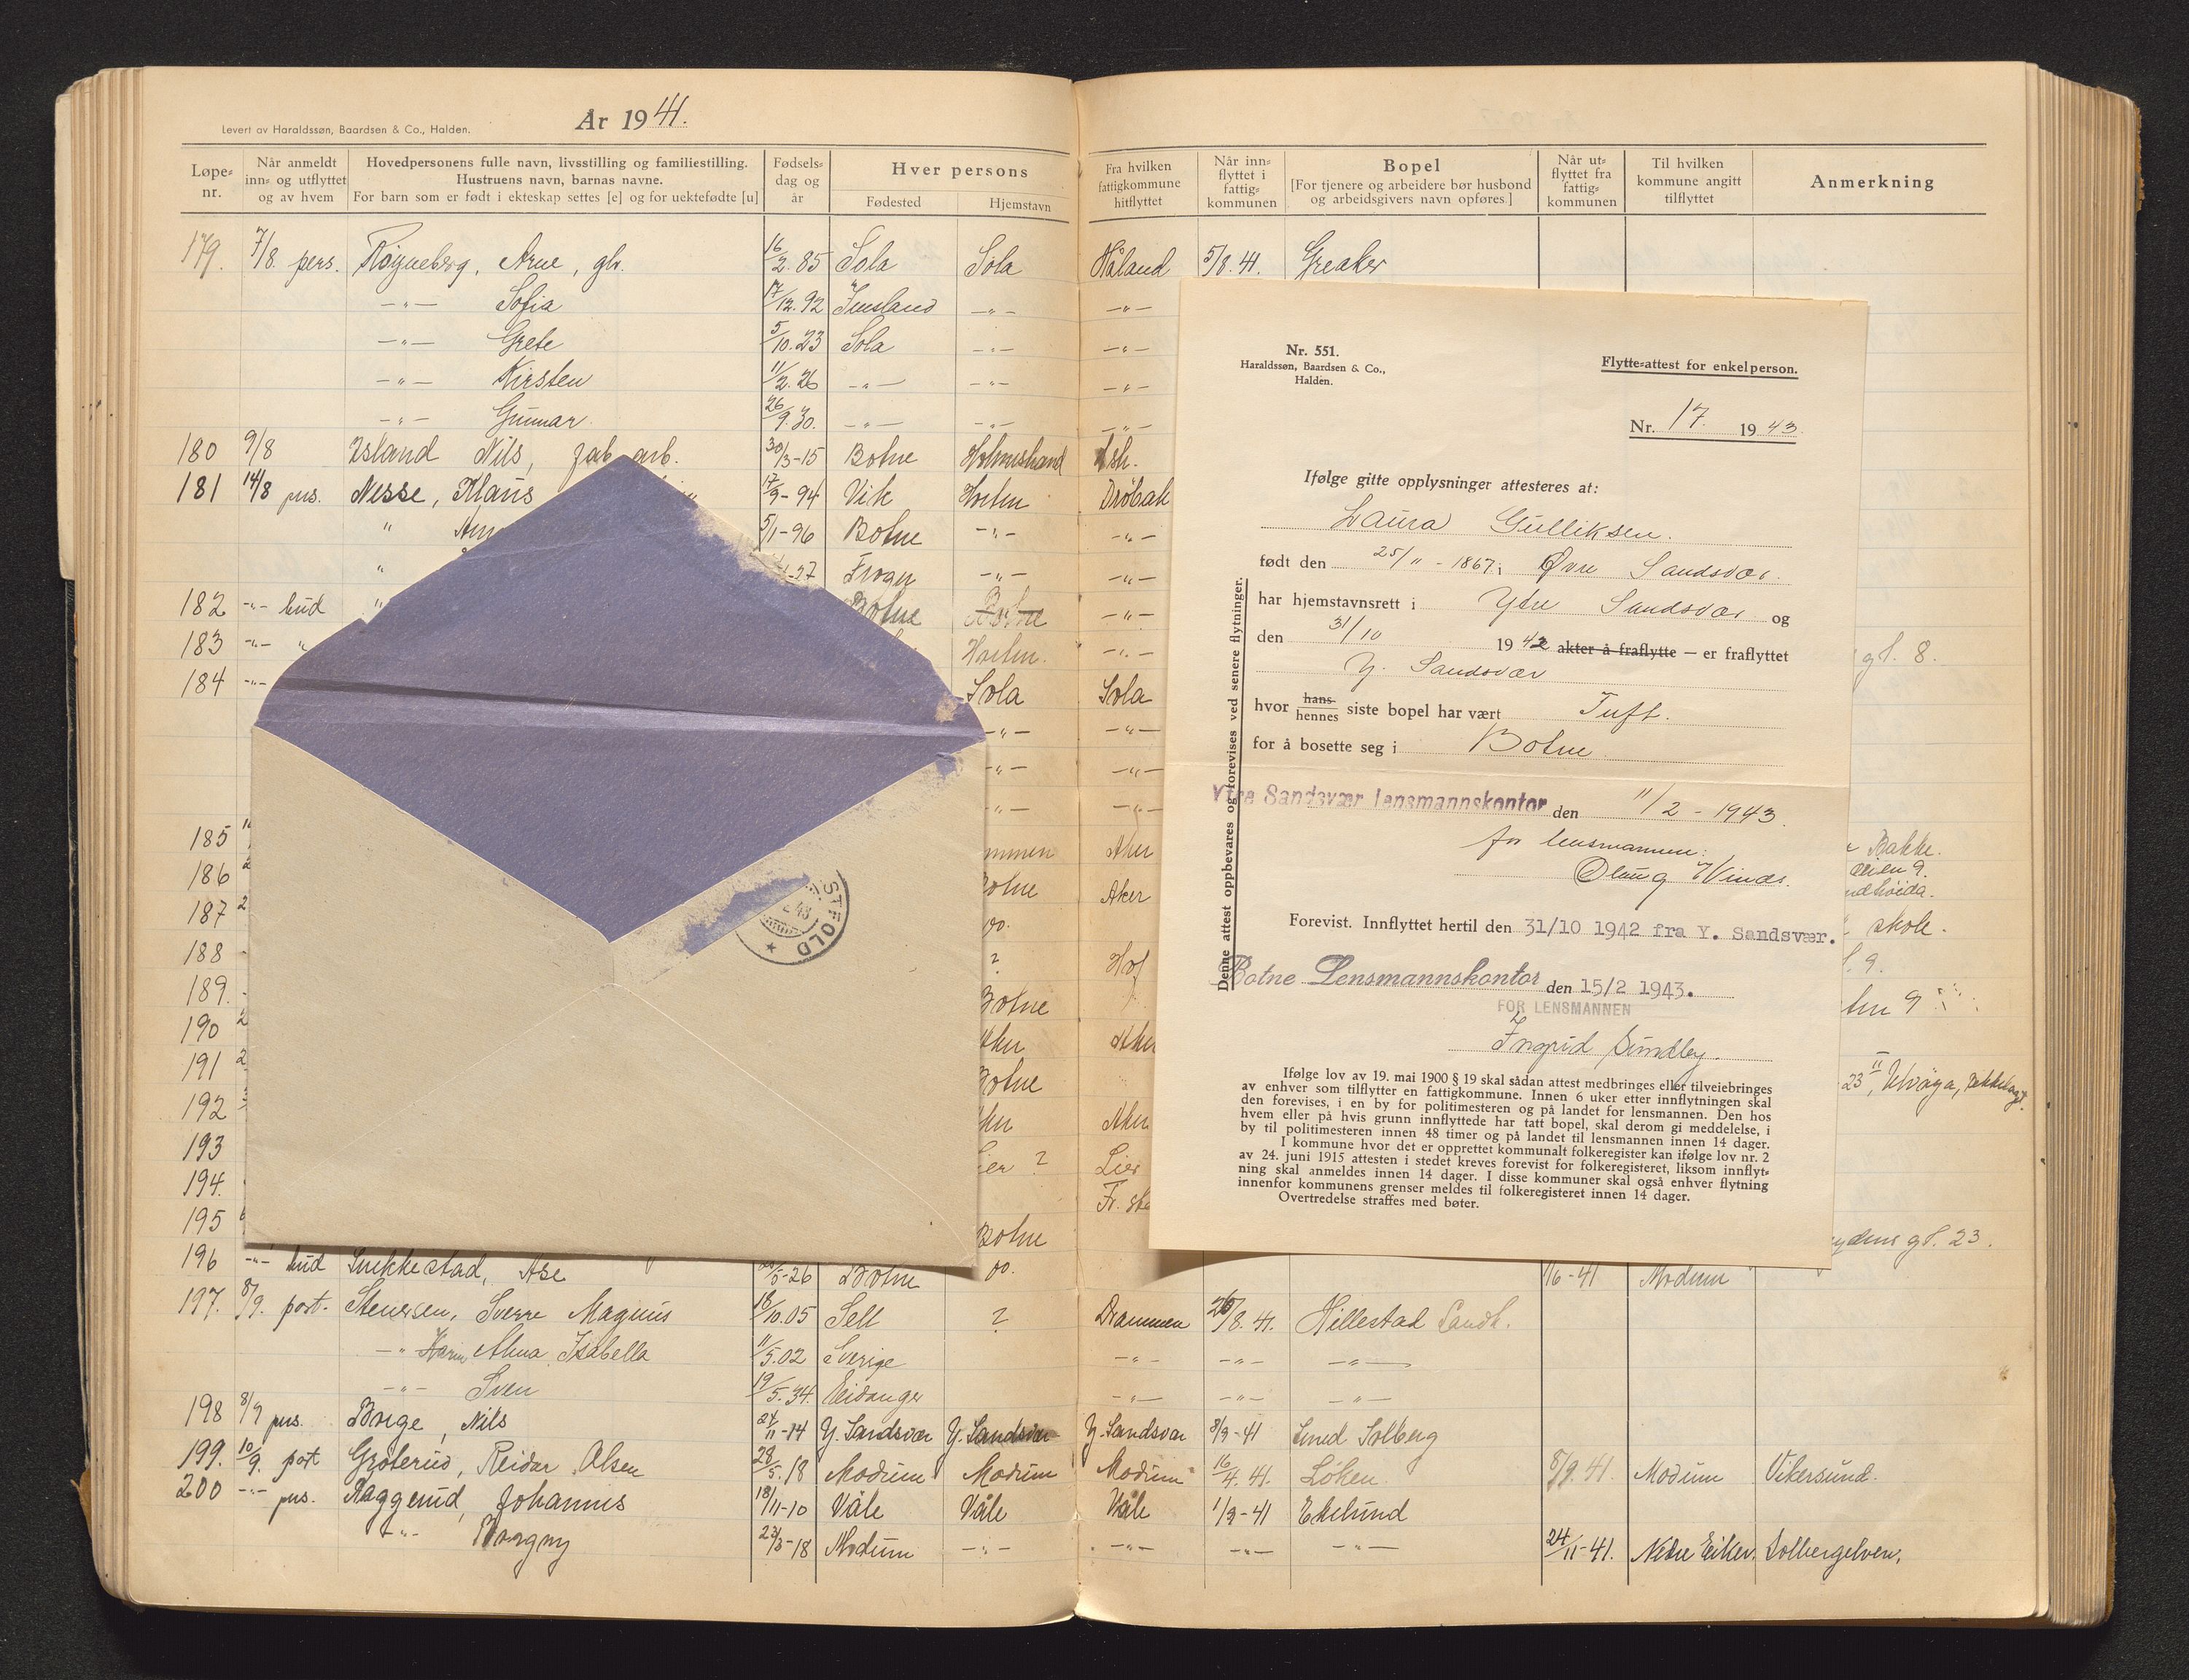 År 1941.
Levert av Haraldssøn, Baardsen & Co., Halden.
Løpe-nr.
Når anmeldt inn- og utflyttet og av hvem
Hovedpersonens fulle navn, livsstilling og familiestilling.
Hustruens navn, barnas navne.
For barn som er født i ekteskap settes [e] og for uektefødte [u]
Fødsels-dag og år
Hver persons
Fødested
Hjemstavn
Fra hvilken fattigkommune hitflyttet
Når inn-flyttet i fattig-kommunen
Bopel
[For tjenere og arbeidere bør husbond og arbeidsgivers navn opføres.]
Når ut-flyttet fra fattig-kommunen
Til hvilken kommune angitt tilflyttet
Anmerkning
179. 7/8. pers. Røyneberg, Arne, gbr. 16/2.85 Sola Sola Håland 5/8.41. Greaker
-"- Sofia 17/12.92 -"- -"-
-"- Grete 5/10.23 Sola -"- -"-
-"- Kirsten 11/2.26 -"- -"- -"-
-"- Gunnar 26/9.30. -"- -"- -"-
180 9/8 Island Nils, fab.arb. 30/3-15 Botne Holmestrand
181 14/8 pers. Nesse, Klaus 17/9-94 Vik Holm Drøbak
" 5/1-96 Botne -"- -"-
" -27 Frogn -"- -"-
182 -"- bud " Botne Botne -"-
183 -"- " Holm. -"- gl. 8.
184 -"- Sola Sola
-"- -"-
-"- -"-
-"- -"-
185 Aker Bakke.
186 Botne Aker
187 2 do.
skole.
188 ? Hof
189. Botne
190 2 Aker Aker
191 2 Botne
192 Aker Aker
193 Lier ? Lier
194.
195 Botne
196 -"- bud Snekkestad, Åse -26 Botne do. -41 Modum
197. 8/9. post. Stenersen, Sverre Magnus 18/10.05 Sell ? Drammen 20/8.41. Hillestad Landh.
-"- Alma Isabella 11/5.02 Sverige -"- -"- -"-
-"- Sven 19/5.34. Eidanger -"- -"- -"-
198 8/9 pers. Borge, Nils 24/11-14 Y. Sandsvær Y. Sandsvær Y. Sandsvær 8/9-41 Solberg
199. 10/9. post Grøterud, Reidar Olsen 28/5.18 Modum Modum Modum 16/4.41. Løken. 8/9.41. Modum Vikersund.
200 -"- pers. Raggerud, Johannes 18/11-10 Våle Våle Våle 1/9-41 Ekelund
-"- Borgny 23/3-18 Modum -"- -"- -"- -"- 24/11-41. Nedre Eiker. Solbergelven.
STFOLD
Nr. 551.
Haraldssøn, Baardsen & Co.,
Halden.
Flytte-attest for enkelperson.
Nr. 17. 1943.
Ifølge gitte opplysninger attesteres at:
Laura Gulliksen.
født den 25/11-1867 i Øvre Sandsvær.
har hjemstavnsrett i Ytre Sandsvær og
den 31/10 1942 akter å fraflytte — er fraflyttet
Y. Sandsvær
hvor hans hennes siste bopel har vært Tuft.
for å bosette seg i Botne
Ytre Sandsvær lensmannskontor den 11/2-1943.
for lensmannen:
Olaug Vinds.
Forevist. Innflyttet hertil den 31/10 1942 fra Y. Sandsvær.
Botne Lensmannskontor den 15/2 1943.
FOR LENSMANNEN
Ingrid Sundby.
Ifølge lov av 19. mai 1900 § 19 skal sådan attest medbringes eller tilveiebringes
av enhver som tilflytter en fattigkommune. Innen 6 uker etter innflytningen skal
den forevises, i en by for politimesteren og på landet for lensmannen. Den hos
hvem eller på hvis grunn innflyttede har tatt bopel, skal derom gi meddelelse, i
by til politimesteren innen 48 timer og på landet til lensmannen innen 14 dager.
I kommune hvor det er opprettet kommunalt folkeregister kan ifølge lov nr. 2
av 24. juni 1915 attesten i stedet kreves forevist for folkeregisteret, liksom innflyt-
ning skal anmeldes innen 14 dager. I disse kommuner skal også enhver flytning
innenfor kommunens grenser meldes til folkeregisteret innen 14 dager.
Overtredelse straffes med bøter.
Denne attest oppbevares og forevises ved senere flytninger.